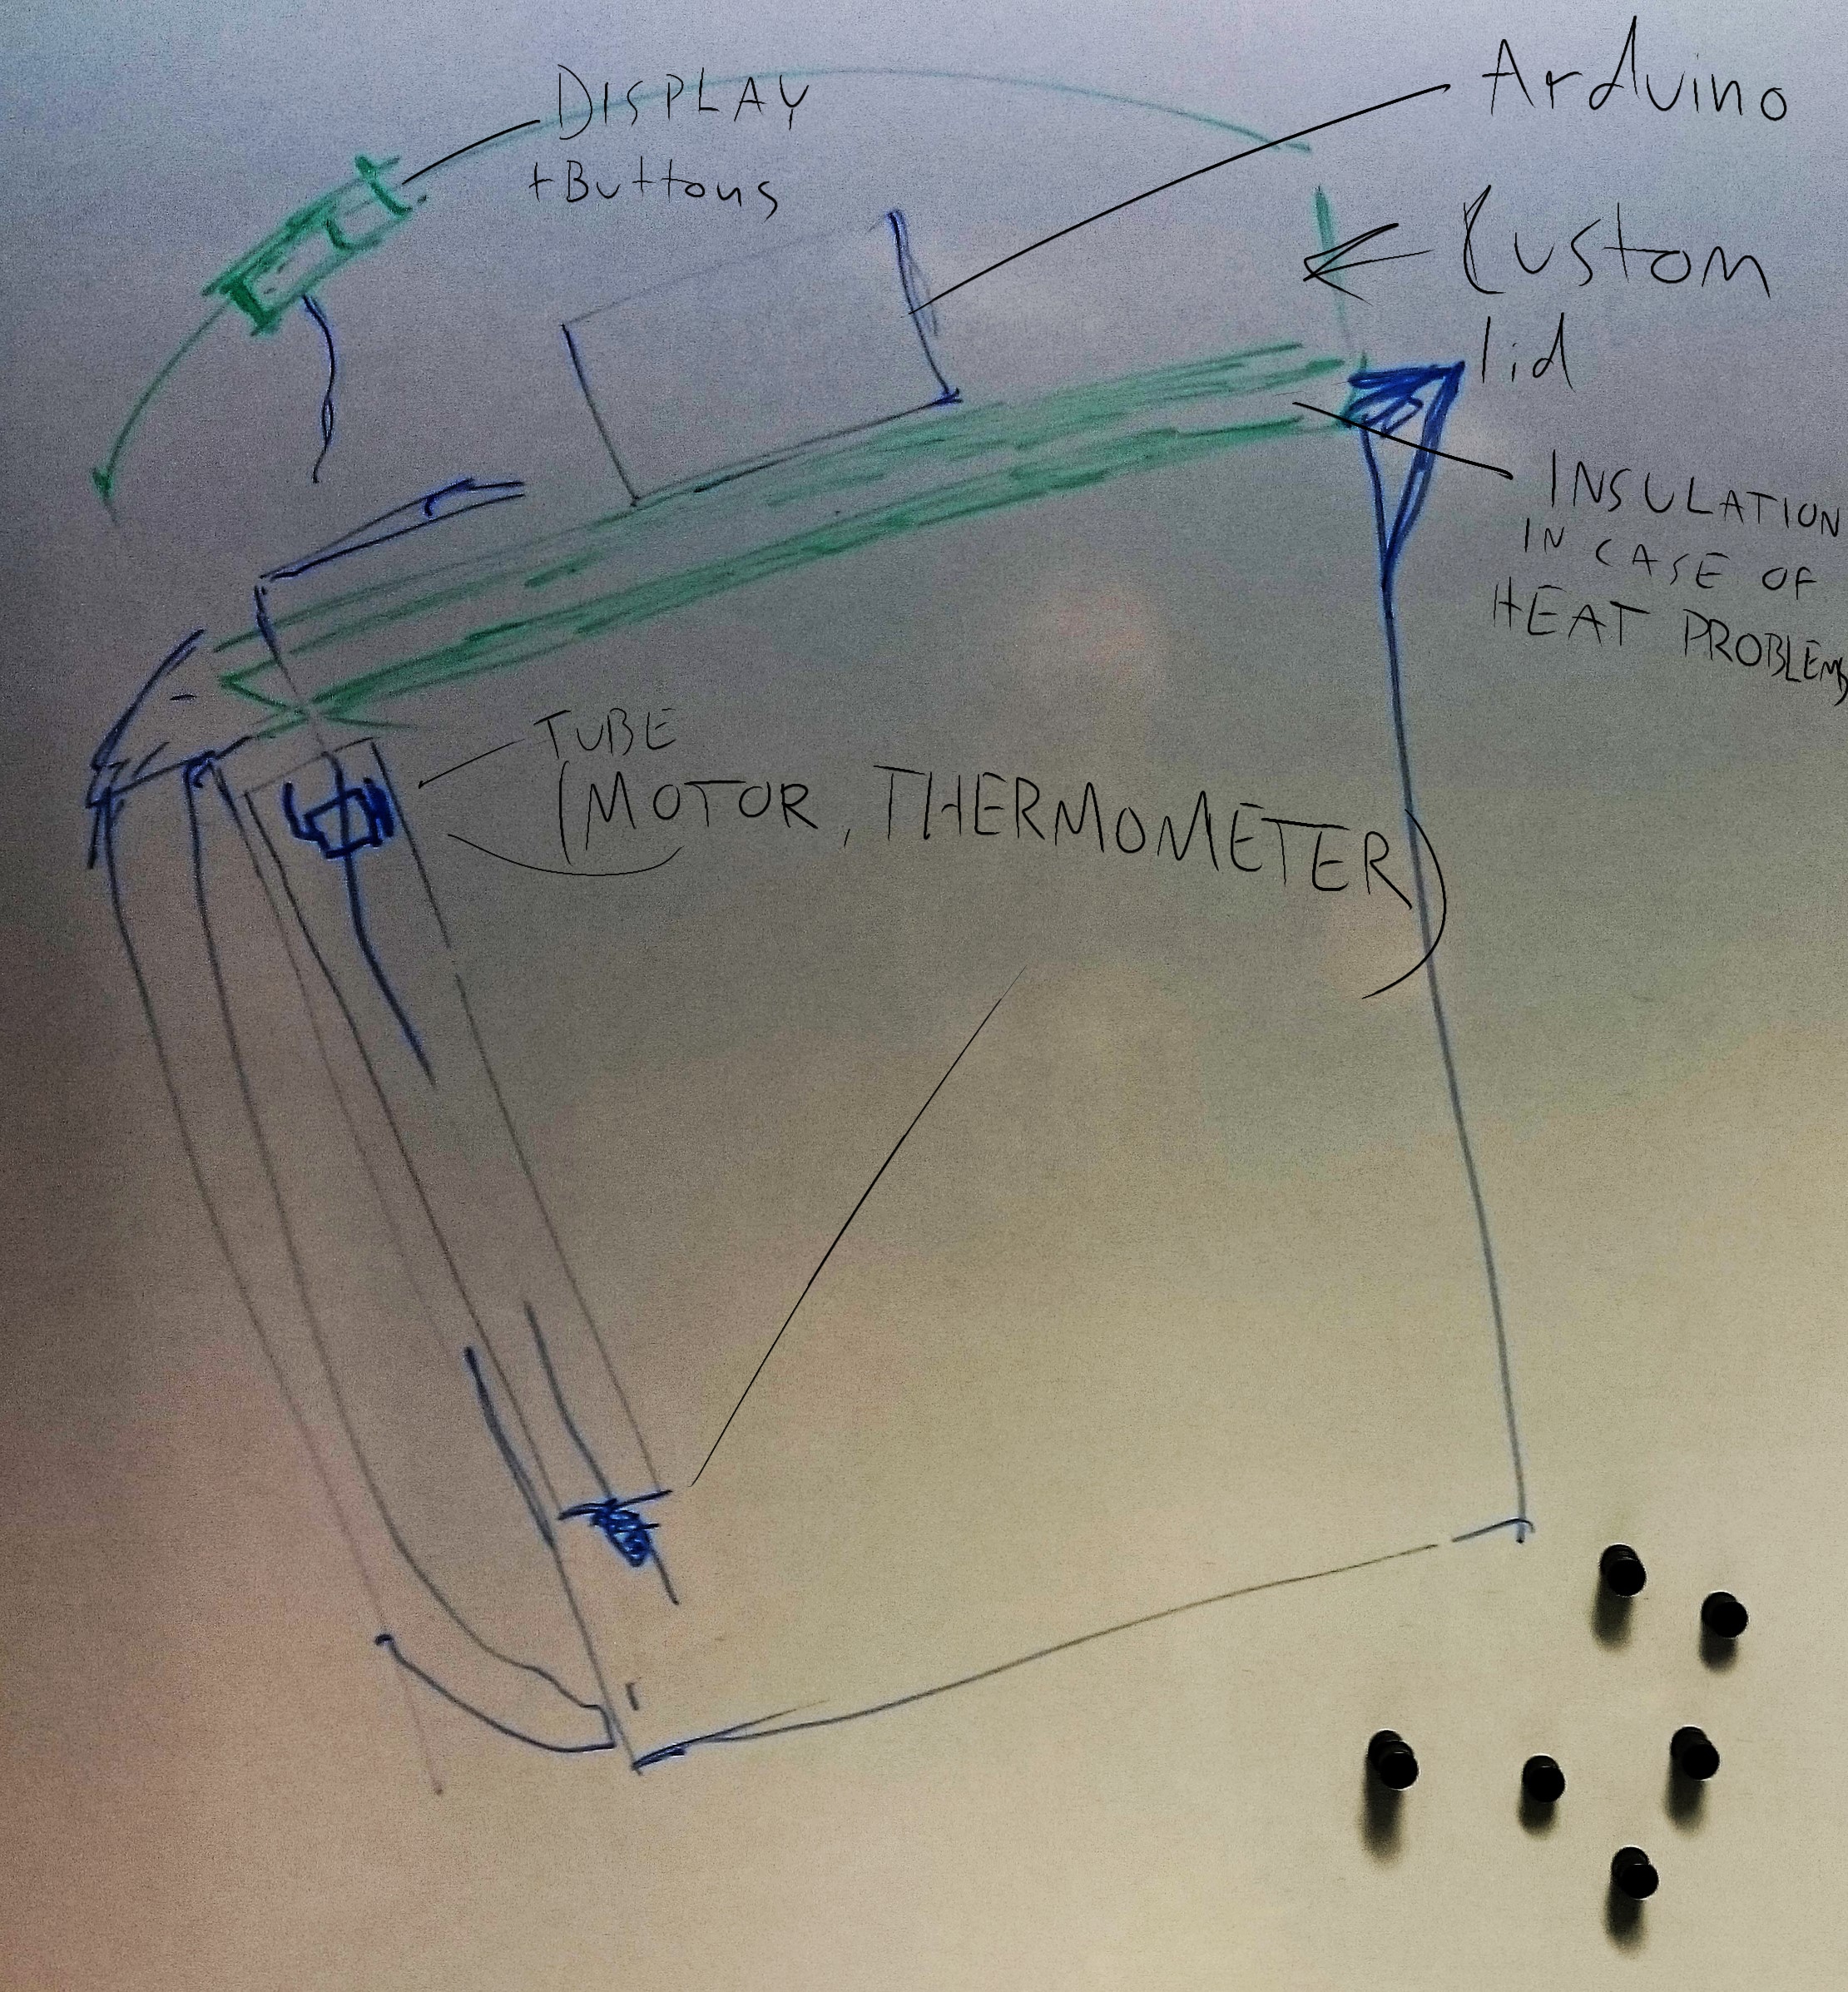 DISPLAY
+Buttons
Arduino
Custom
lid
INSULATION
IN CASE OF
HEAT PROBLEMS
TUBE
(MOTOR, THERMOMETER)